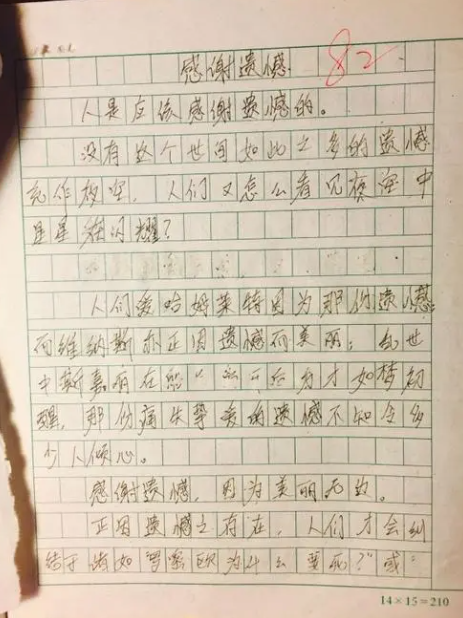 感谢遗憾
82
人是应该感谢遗憾的。
没有这个世间如此之多的遗憾
充作夜空，人们又怎么看见夜空中
星星在闪耀？
人们爱哈姆莱特因为那份遗憾；
而维纳斯亦正因遗憾而美丽；乱世
中斯嘉丽在
才如梦初
醒，那份痛失挚爱的遗憾不知令多
少人倾心。
感谢遗憾，因为美丽
正因遗憾之存在，人们才会纠
结于诸如“罗密欧为什么要死？”或
14×15=210